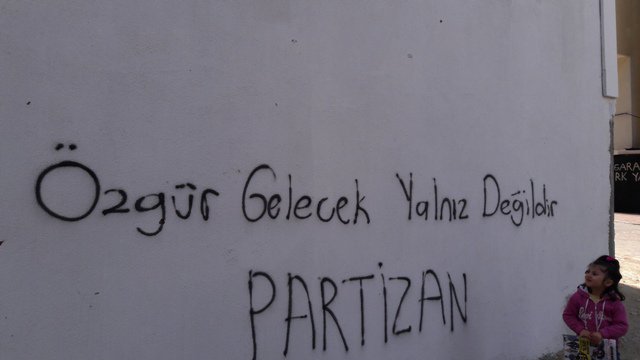 Özgür Gelecek Yalnız Değildir
PARTİZAN
GARA
RK YA